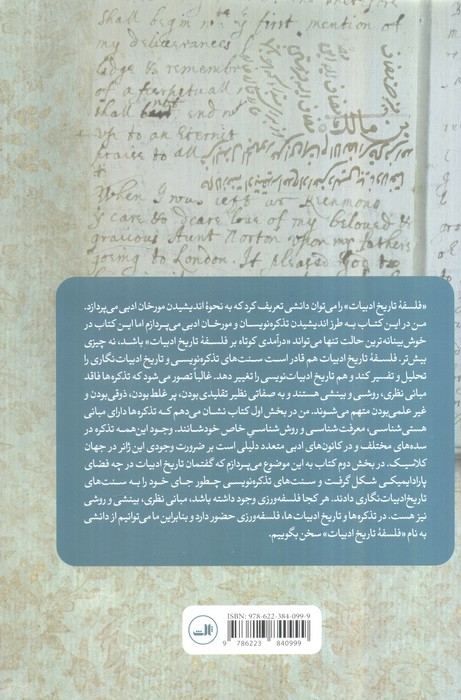 Shall begin nte ye first mention of
my deliverances
&remembr
of a perpetuall
shall end
up to an Eternit
praise to all
When I was left wt Kenmons
care & deare love of my beloved &
gracious Aunt Norton when my fathers
going to London. It pleased God to
«فلسفهٔ تاریخ ادبیات» را می‌توان دانشی تعریف کرد که به نحوهٔ اندیشیدن مورخان ادبی می‌پردازد.
من در این کتاب به طرز اندیشیدن تذکره‌نویسان و مورخان ادبی می‌پردازم اما این کتاب در
خوش‌بینانه‌ترین حالت تنها می‌تواند «درآمدی کوتاه بر فلسفهٔ تاریخ ادبیات» باشد، نه چیزی
بیش‌تر. فلسفهٔ تاریخ ادبیات هم قادر است سنت‌های تذکره‌نویسی و تاریخ ادبیات نگاری را
تحلیل و تفسیر کند و هم تاریخ ادبیات‌نویسی را تغییر دهد. غالباً تصور می‌شود که تذکره‌ها فاقد
مبانی نظری، روشی و بینشی هستند و به صفاتی نظیر تقلیدی بودن، پر غلط بودن، ذوقی بودن و
غیر علمی بودن متهم می‌شوند. من در بخش اول کتاب نشان می‌دهم که تذکره‌ها دارای مبانی
هستی‌شناسی، معرفت‌شناسی و روش‌شناسیِ خاص خودشانند. وجود این‌همه تذکره در
سده‌های مختلف و در کانون‌های ادبی متعدد دلیلی است بر ضرورت وجودی این ژانر در جهان
کلاسیک. در بخش دوم کتاب به این موضوع می‌پردازم که گفتمان تاریخ ادبیات در چه فضای
پارادایمیکی شکل گرفت و سنت‌های تذکره‌نویسی چطور جای خود را به سنت‌های
تاریخ ادبیات‌نگاری دادند. هر کجا فلسفه‌ورزی وجود داشته باشد، مبانی نظری، بینشی و روشی
نیز هست. در تذکره‌ها و تاریخ ادبیات‌ها، فلسفه‌ورزی حضور دارد و بنابراین ما می‌توانیم از دانشی
به نام «فلسفهٔ تاریخ ادبیات» سخن بگوییم.
ISBN: 978-622-384-099-9
9 786223 840999